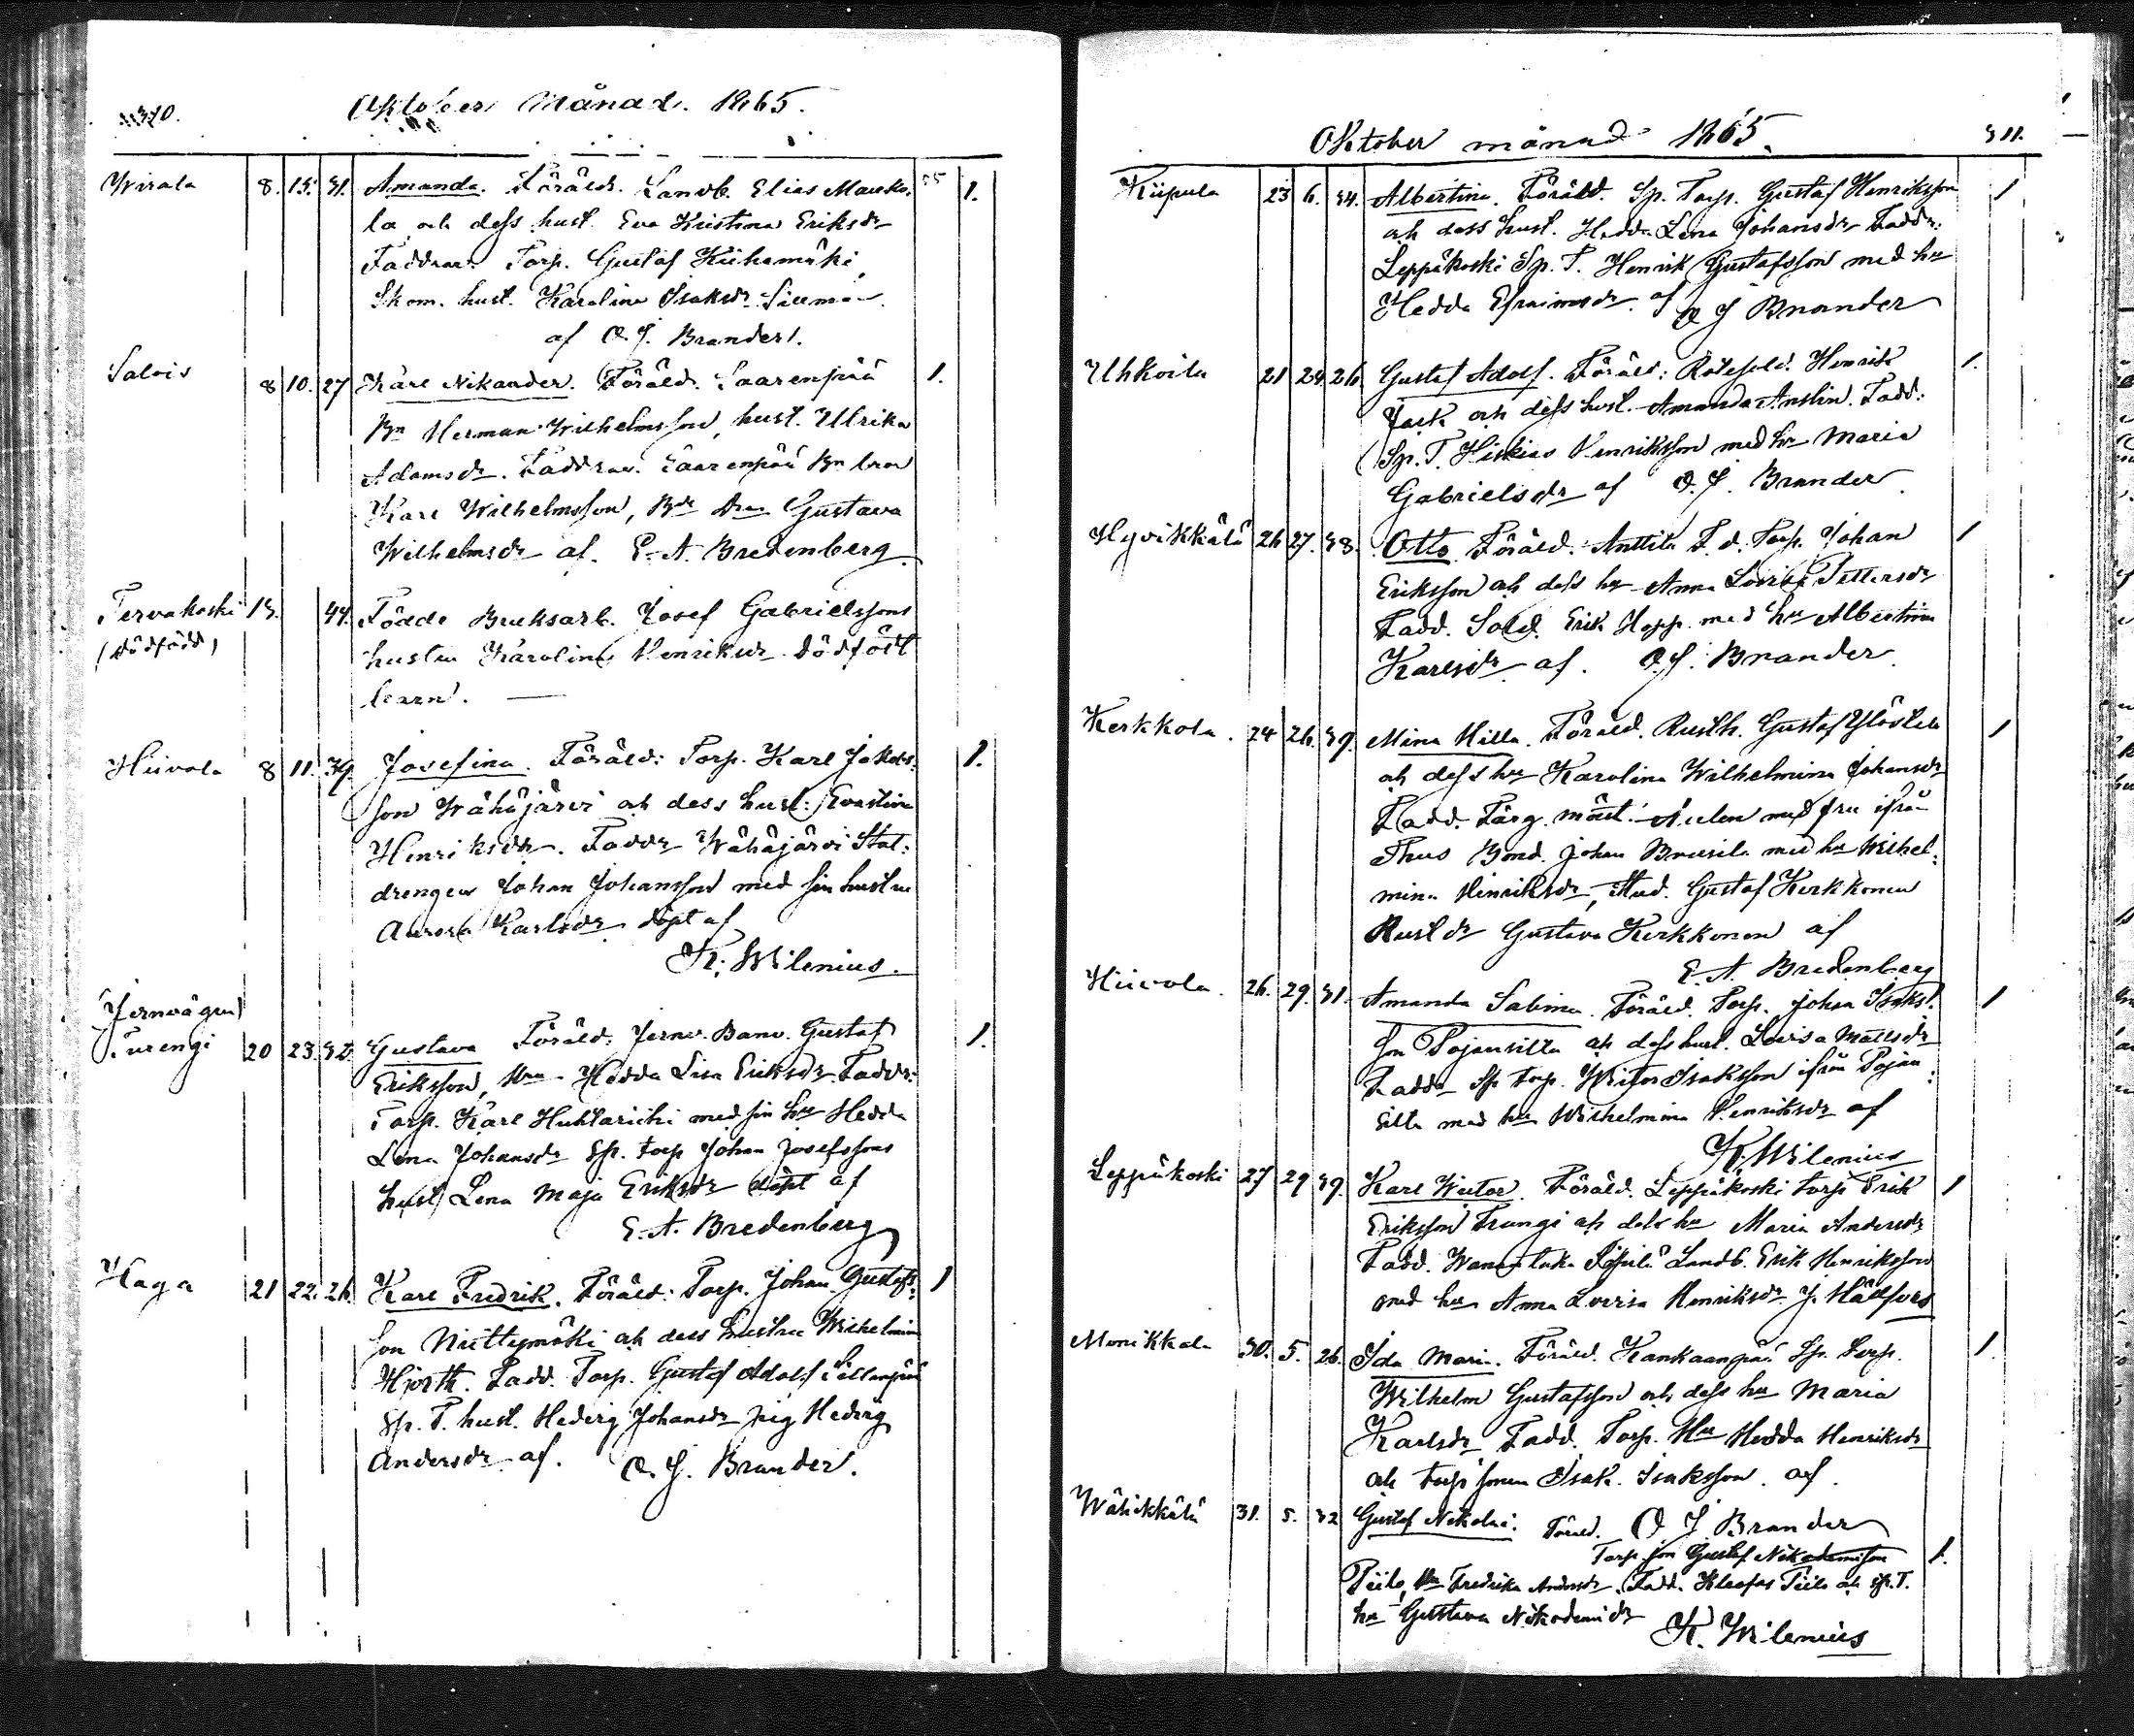 310.
Oktober Månad. 1865.
Wirala 8. 15. 31. Amanda. Föräldr. Landb. Elias Mauko= 1.
la och dess hust. Eva Kristina Eriksdr
Faddrar: Torp. Gustaf Kiihamäki,
Skom. hust. Karolina Isaksdr
af O. J. Brander.
Salois 8 10. 27 Karl Nikander. Föräld. Saarenpää 1.
Bn Herman Wilhelmsson, hust. Ulrika
Adamsdr. Faddrar. Saarenpää Bn bror
Karl Wilhelmsson, Bdr Gustava
Wilhelmsdr af. E. A. Bredenberg
Tervakoski 13. 44. Födde Bruksarb. Josef Gabrielssons
(dödfödd) hustru Karolina Henriksdr dödfödt
barn. —
Hiivola 8 11. 39 Josefina. Föräld: Torp. Karl Jakobs= 1.
son Wähäjärvi och dess hust: Evastina
Henriksdr. Faddr Wähäjärvi Stal=
drengen Johan Johansson med sin hustru
Aurora Karlsdr döpt af
K. Wilenius.
Jernvägen
Turengi 20 23. 32. Gustava Föräld. Jernv. Banv. Gustaf 1.
Eriksson, Hru Hedda Lisa Eriksdr. Faddr:
Torp. Karl Huhtarichi med sin hru Hedda
Lena Johansdr Sp. torp Johan Josefssons
hust Lena Maja Eriksdr döpt af
E. A. Bredenberg
Haga 21 22. 26. Karl Fredrik. Föräld: Torp. Johan Gustafs= 1
son Niittymäki och dess hustru Wilhelmina
Hjorth. Fadd. Torp. Gustaf Adolf Sillanpää
Sp. T. hust. Hedvig Johansdr pig Hedvig
Andersdr af. O. J. Brander.
Oktober månad 1865. 311.
Kiipula 23 6. 34. Albertina. Föräld. Sp. Torp. Gustaf Henriksson 1
och dess hust. Hedda Lena Johansdr Faddr.
Leppäkoski Sp. T. Henrik Gustafsson med hru
Hedda Efraimsdr. af O J Brander
Uhkoila 21 24. 26. Gustaf Adolf. Föräld: Rotesold. Henrik 1.
Jack och dess hust. Amanda Anslin. Fadd:
Sp. T. Hiskias Henriksson med hru Maria
Gabrielsdr af O. J. Brander
Hyvikkälä 26 27. 38. Otto. Föräld. Anttila F. d. Torp. Johan 1
Eriksson och dess hu Anna Lovisa Pettersdr
Fadd. Sold. Erik Hopp med hru Albertina
Karlsdr af. O. J. Brander
Kerkkola. 24 26. 39. Mina Hilla. Föräld. Rusth. Gustaf Ylöstalo 1
och dess hru Karolina Wilhelmina Johansdr
Fadd. Färg. mäst. med fru ifrån
Thus Bond. Johan Brusila med hru Wilhel=
mina Henriksdr, Stud. Gustaf Kerkkonen
Rustdr Gustava Kerkkonen af
E. A. Bredenberg
Hiivola. 26. 29. 31. Amanda Sabina. Föräld. Torp. Johan Isaks= 1
son Pajansilta och dess hust. Lovisa Mattsdr
Faddr Sp torp. Wiktor Isaksson ifrån Pajan=
silta med hru Wilhelmina Henriksdr af
K. Wilenius
Leppäkoski 27 29 39. Karl Wictor. Föräld. Leppäkoski torp Erik 1
Eriksson Frangi och dess hu Maria Andersdr
Fadd. Landb. Erik Henriksson
med hu Anna Lovisa Henriksdr. J. Hällfors
Monikkala 30. 5. 26. Ida Maria. Föräld. Kankaanpää Sp. Torp. 1.
Wilhelm Gustafsson och dess hu Maria
Karlsdr Fadd. Torp. Hu Hedda Henriksdr
och torp sonen Isak Isaksson af.
Wählikkälä 31. 5. 32 Gustaf Nikolai. Föräld. O J. Brander
Torp. son Gustaf Nikodemisson 1.
Piilo, Hu Fredrika Andersdr. Fadd. Kleofas Piilo och sp. T.
hu Gustava Nikodemidr K. Wilenius